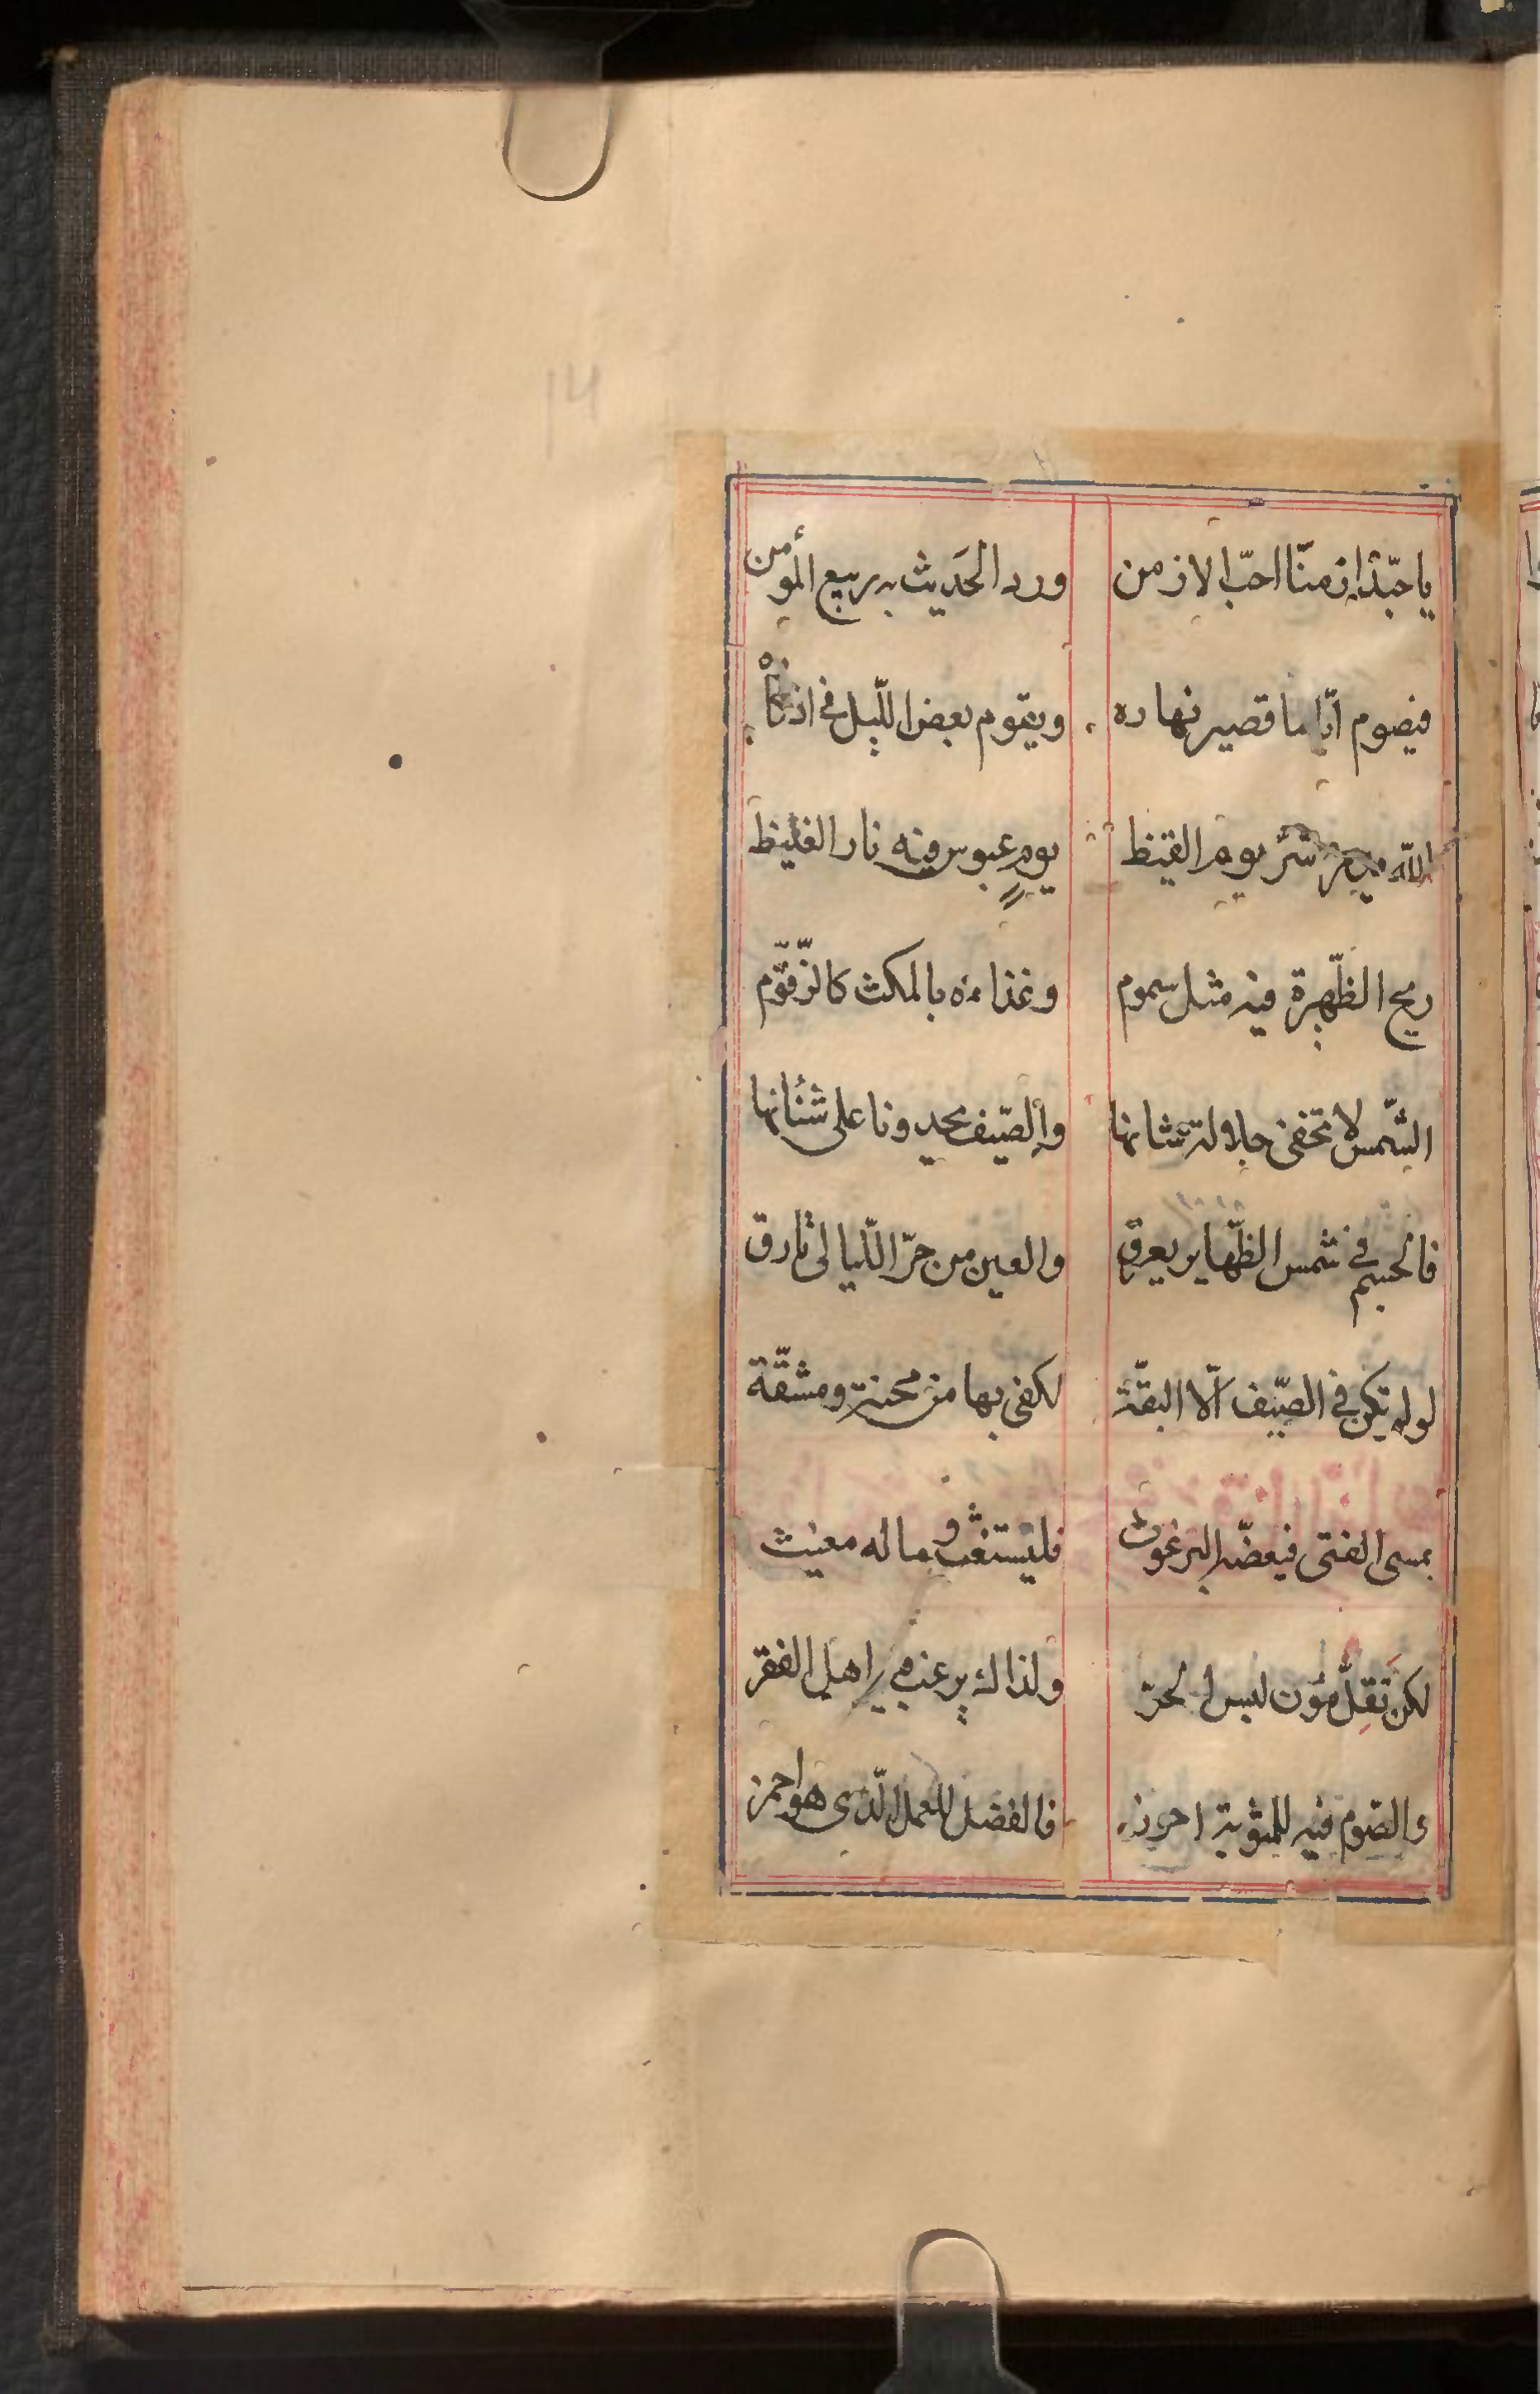 14
يا حبّذا زمنّا احبّ الازمن ورد الحَديث به ربيع المؤمن
فيصوم ايّاما قصير نهاره ويقوم بعض اللّيل في اذكاره
الله من شرّ يوم القيظ يومٍ عبوس فيه نار الغيظ
ريح الظّهيرة فيه مثل سموم وغذاءه بالمكث كالزّقّوم
الشّمس لا تخفى جلالة شانها والصّيف يحدونا على شنٔانها
فالجسم في شمس الظّهاير يعرق والعين من حرّ اللّيالى تارق
لو لم تكن في الصّيف الّا البقّة لكفى بها من محنة ومشقّة
يمسى الفتى فيعضّه البرغوث فليستغث وما له مغيث
لكن تَقِلُّ مؤن لبس الحرّ ولذاك يرغب فيه اهل الفقر
والصّوم فيه للمثوبة احرز فالفضل للعمل الّذى هو احمز